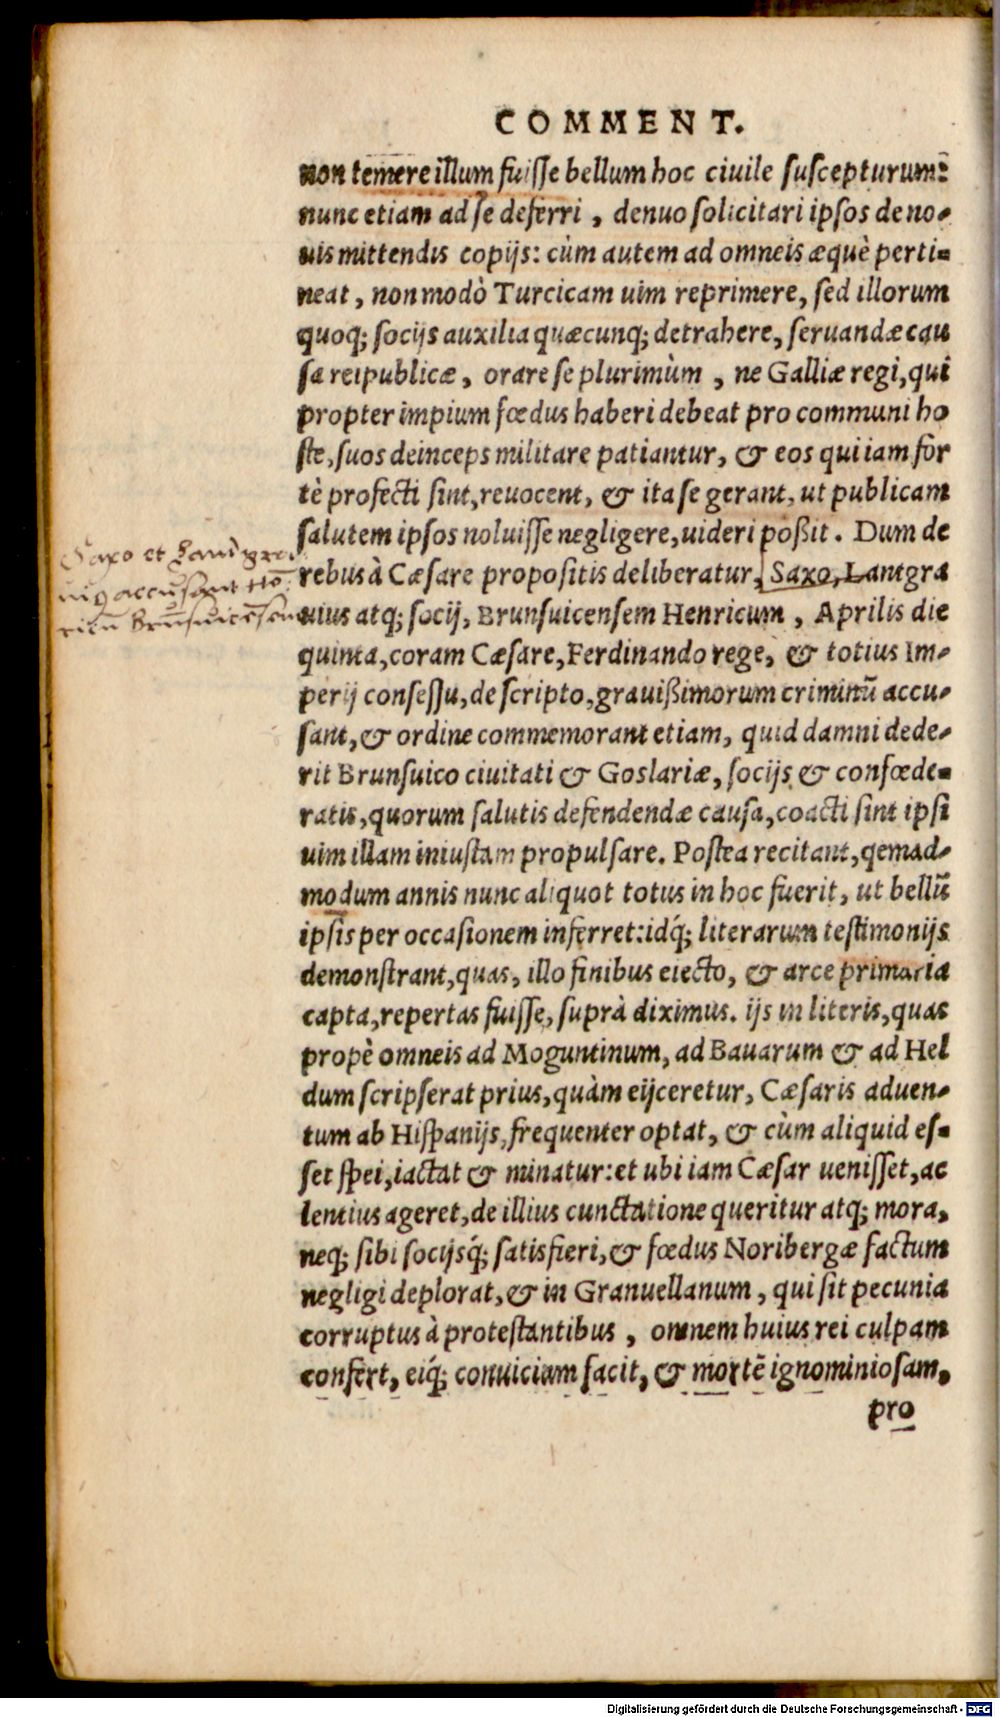 COMMENT.
non temere illum fuisse bellum hoc ciuile suscepturum:
nunc etiam ad se deferri, denuo solicitari ipsos de no-
uis mittendis copijs: cùm autem ad omneis æquè perti-
neat, non modò Turcicam uim reprimere, sed illorum
quoq; socijs auxilia quæcunq; detrahere, seruandæ cau
sa reipublicæ, orare se plurimùm, ne Galliæ regi, qui
propter impium fœdus haberi debeat pro communi ho
ste, suos deinceps militare patiantur, & eos qui iam for
tè profecti sint, reuocent, & ita se gerant, ut publicam
salutem ipsos noluisse negligere, uideri poßit. Dum de
rebus à Cæsare propositis deliberatur, Saxo, Lantgra
uius atq; socij, Brunsuicensem Henricum, Aprilis die
quinta, coram Cæsare, Ferdinando rege, & totius Im-
perij consessu, de scripto, grauißimorum criminū accu-
sant, & ordine commemorant etiam, quid damni dede-
rit Brunsuico ciuitati & Goslariæ, socijs & confœde-
ratis, quorum salutis defendendæ causa, coacti sint ipsi
uim illam iniustam propulsare. Postea recitant, qemad-
modum annis nunc aliquot totus in hoc fuerit, ut bellū
ipsis per occasionem inferret: idq́; literarum testimonijs
demonstrant, quas, illo finibus eiecto, & arce primaria
capta, repertas fuisse, suprà diximus. ijs in literis, quas
propè omneis ad Moguntinum, ad Bauarum & ad Hel
dum scripserat prius, quàm eijceretur, Cæsaris aduen-
tum ab Hispanijs, frequenter optat, & cùm aliquid es-
set spei, iactat & minatur: et ubi iam Cæsar uenisset, ac
lentius ageret, de illius cunctatione queritur atq; mora,
neq; sibi socijsq́; satisfieri, & fœdus Noribergæ factum
negligi deplorat, & in Granuellanum, qui sit pecunia
corruptus à protestantibus, omnem huius rei culpam
confert, eiq́; conuicium facit, & mortē ignominiosam,
pro
Saxo et Landgra
uiꝰ accusant He
ricū Brūsuicēsem
Digitalisierung gefördert durch die Deutsche Forschungsgemeinschaft - DFG